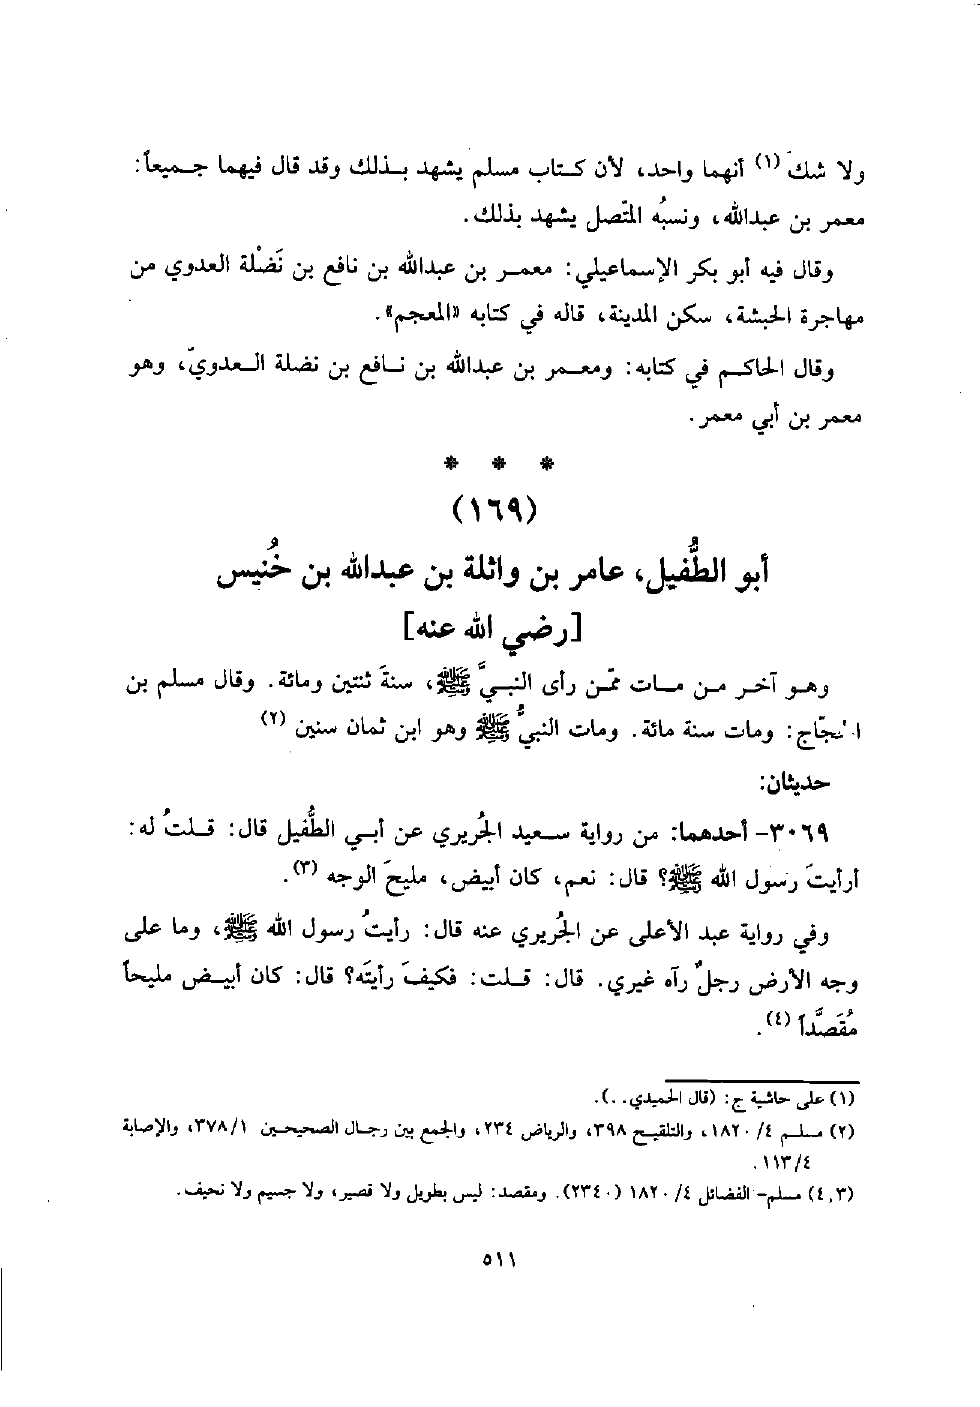 ولا شك (١) أنهما واحد، لأن كتاب مسلم يشهد بذلك وقد قال فيهما جميعاً:
معمر بن عبدالله، ونسبُه المتّصل يشهد بذلك.
وقال فيه أبو بكر الإسماعيلي: معمر بن عبدالله بن نافع بن نَضْلة العدوي من
مهاجرة الحبشة، سكن المدينة، قاله في كتابه «المعجم».
وقال الحاكم في كتابه: ومعمر بن عبدالله بن نافع بن نضلة العدويّ، وهو
معمر بن أبي معمر.
* * *
(١٦٩)
أبو الطُّفيل، عامر بن واثلة بن عبدالله بن خُنيس
[رضي الله عنه]
وهو آخر من مات ممّن رأى النبيَّ ﷺ، سنةَ ثنتين ومائة. وقال مسلم بن
الحجّاج: ومات سنة مائة. ومات النبيُّ ﷺ وهو ابن ثمان سنين (٢)
حديثان:
٣٠٦٩- أحدهما: من رواية سعيد الجُريري عن أبي الطُّفيل قال: قلتُ له:
أرأيتَ رسول الله ﷺ؟ قال: نعم، كان أبيض، مليحَ الوجه (٣).
وفي رواية عبد الأعلى عن الجُريري عنه قال: رأيتُ رسول الله ﷺ، وما على
وجه الأرض رجلٌ رآه غيري. قال: قلت: فكيفَ رأيتَه؟ قال: كان أبيض مليحاً
مُقَصَّداً (٤).
(١) على حاشية ج: (قال الحميدي..).
(٢) مسلم ٤/ ١٨٢٠، والتلقيح ٣٩٨، والرياض ٢٣٤، والجمع بين رجال الصحيحين ١/ ٣٧٨، والإصابة
٤/ ١١٣.
(٣,٤) مسلم- الفضائل ٤/ ١٨٢٠ (٢٣٤٠). ومقصد: ليس بطويل ولا قصير، ولا جسيم ولا نحيف.
٥١١